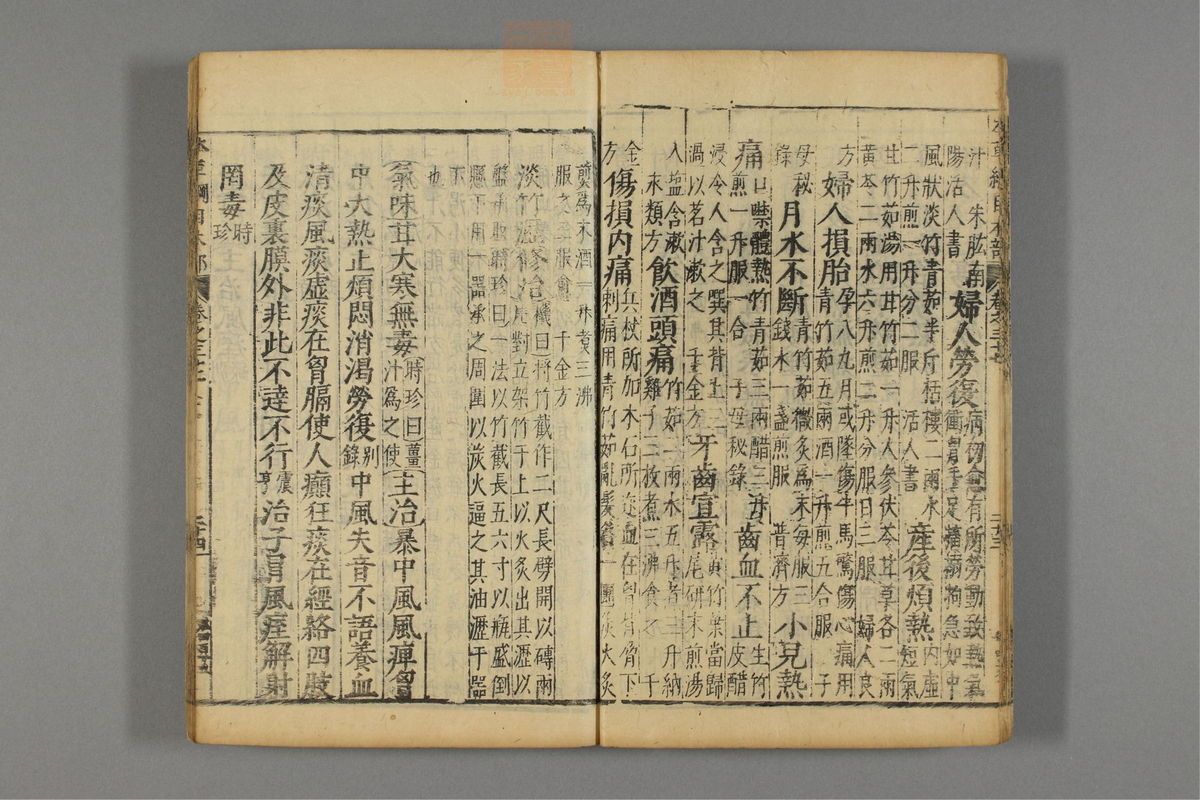 汁 朱肱南陽活人書 婦人勞復病初愈有所勞動致熱氣
衝胷手足搐搦拘急如中風狀淡竹青茹半斤栝樓二兩水
二升煎一升分二服 活人書 産後煩熱內虛短氣
甘竹茹湯用甘竹茹一升人參伏苓甘草各二兩
黃芩二兩水六升煎二升分服日三服 婦人良方
婦人損胎孕八九月或墜傷牛馬驚傷心痛用青竹茹五兩酒一升煎五合服 子母秘錄
月水不斷青竹茹微炙爲末每服三錢水一盞煎服 普濟方 小兒熱
痛口噤體熱竹青茹三兩醋三升煎一升服一合 子母秘錄 齒血不止生竹皮醋
浸令人含之噀其背上三過以茗汁漱之 千金方 牙齒宣露黃竹葉當歸尾研末煎湯
入鹽含漱 飲酒頭痛竹茹二兩水五升煮三升納雞子三枚煮三沸食之 千金方
傷損內痛兵杖所加木石所迮血在胷背脅下刺痛用青竹茹亂髮各一團炭火炙
煎爲末酒一升煮三沸服之三服愈 千金方
淡竹瀝 修治 機曰將竹截作二尺長劈開以磚兩片對立架竹于上以火炙出其瀝以
盤承取 時珍曰一法以竹截長五六寸以瓶盛倒懸下用一器承之周圍以炭火逼之其油瀝于器
下也
氣味甘大寒無毒時珍曰薑汁爲之使主治暴中風風痺胷
中大熱止煩悶消渴勞復別錄中風失音不語養血
清痰風痰虛痰在胷膈使人癲狂痰在經絡四肢
及皮裏膜外非此不達不行震亨治子冒風痓解射
罔毒時珍
本草綱目木部 卷之三十七